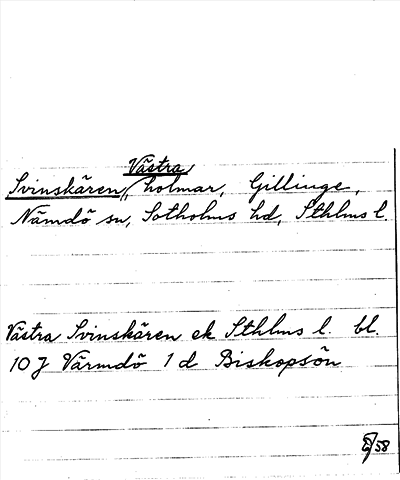 Svinskären, Västra, holmar, Gillinge,
Nämdö sn, Sotholms hd, Sthlms l.
Västra Svinskären ek Sthlms l. bl.
10 J Värmdö 1 d Biskopsön
58